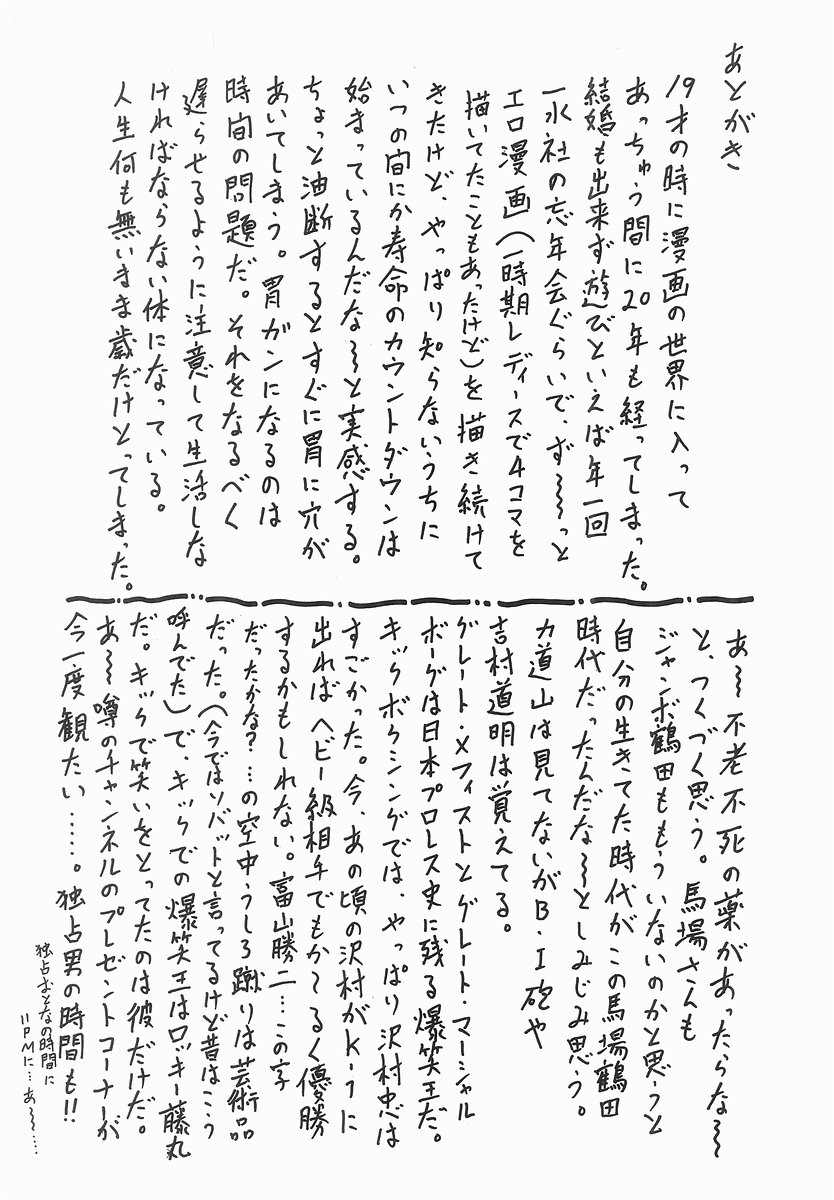 あとがき
19才の時に漫画の世界に入って
あっちゅう間に20年も経ってしまった。
結婚も出来ず遊びといえば年一回
一水社の忘年会ぐらいで、ず〜〜っと
エロ漫画(一時期レディースで4コマを
描いてたこともあったけど)を描き続けて
きたけど、やっぱり知らないうちに
いつの間にか寿命のカウントダウンは
始まっているんだな〜と実感する。
ちょっと油断するとすぐに胃に穴が
あいてしまう。胃ガンになるのは
時間の問題だ。それをなるべく
遅らせるように注意して生活しな
ければならない体になっている。
人生何も無いまま歳だけとってしまった。
あ〜不老不死の薬があったらな〜
と、つくづく思う。馬場さんも
ジャンボ鶴田ももういないのかと思うと
自分の生きてた時代がこの馬場鶴田
時代だったんだな〜としみじみ思う。
力道山は見てないがB・I砲や
吉村道明は覚えてる。
グレート・メフィストとグレート・マーシャル
ボーグは日本プロレス史に残る爆笑王だ。
キックボクシングでは、やっぱり沢村忠は
すごかった。今、あの頃の沢村がK-1に
出ればヘビー級相手でもかてるく優勝
するかもしれない。富山勝二…この字
だったかな?…の空中うしろ蹴りは芸術品
だった。(今ではソバットと言ってるけど昔はこう
呼んでた)で、キックでの爆笑王はロッキー藤丸
だ。キックで笑いをとってたのは彼だけだ。
あ〜〜噂のチャンネルのプレゼントコーナーが
今一度観たい……。独占男の時間も!!
独占おとなの時間に
11PMに…あ〜〜……